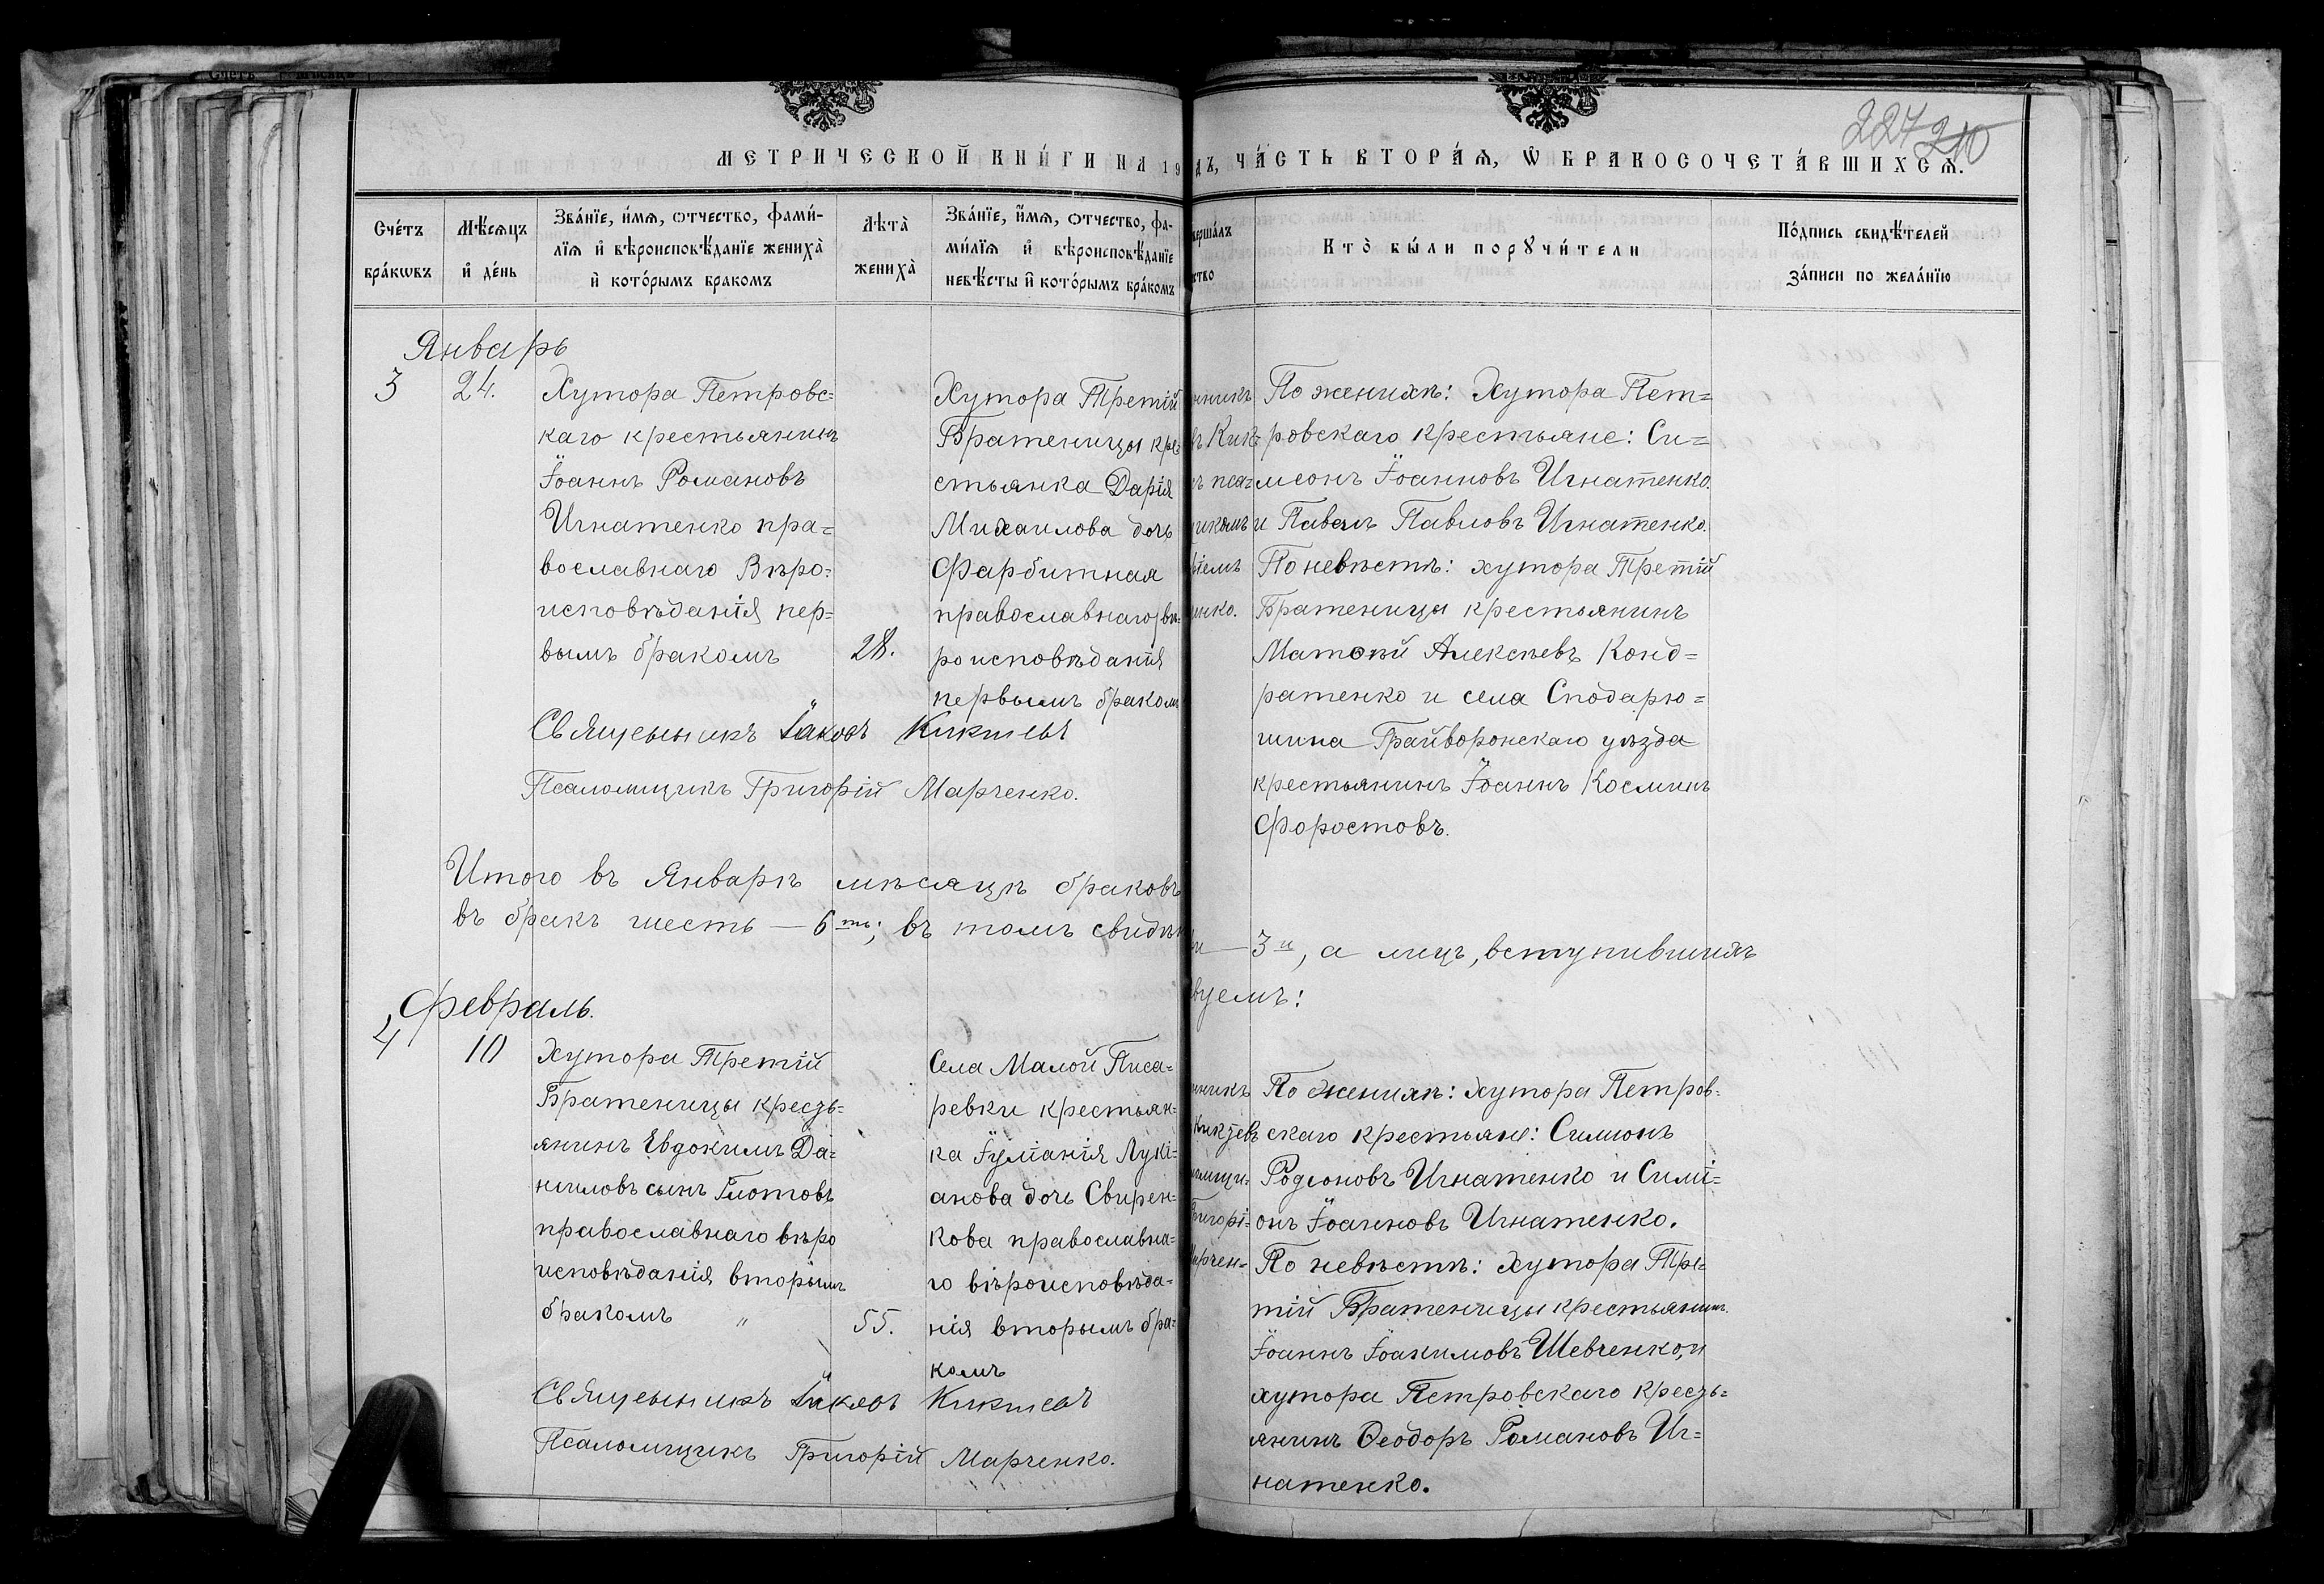 227 210
МЕТРИЧЕСКОЙ КНИ́ГИ НА 19
ДЪ, ЧА́СТЬ ВТОРА́Ѧ, Ѽ БРАКОСОЧЕТА́ВШИХСѦ.
Сче́тъ
бра́кѡвъ
Мѣ́сѧцъ
и҆ де́нь
Зва́нїе, и́мѧ, ѻтчество, фами́-
лїѧ и҆ вѣроисповѣ́данїе жениха̀
и҆ кото́рымъ бракомъ
Лѣта̀
жениха̀
Зва́нїе, и҆́мѧ, ѻтчество, фа-
ми́лїѧ и҆ вѣроисповѣ́данїе
невѣ́сты и҆ кото́рымъ бра́комъ
верша́лъ
ство
Кто̀ бы́ли порꙋчи́тели
По́дпись свидѣ́телей
за́писи по жела́нїю
Январь
3
24.
Хутора Петровс=
каго крестьянинъ
Іоаннъ Романовъ
Игнатенко пра=
вославнаго Вѣро=
исповѣданія пер=
вымъ бракомъ
28.
Хутора Третій
Братеницы кре=
стьянка Дарія
Михаилова дочь
Фарбитная
православнаго вѣ=
роисповѣданія
первымъ бракомъ
нникъ
въ Кик=
ъ пса=
щикомъ
ріемъ
енко.
По женихѣ: Хутора Пет=
ровскаго крестьяне: Си=
меонъ Іоанновъ Игнатенко.
и Павелъ Павловъ Игнатенко.
По невѣстѣ: хутора Третій
Братеницы крестьянинъ
Матѳѣй Алексѣевъ Конд=
ратенко и села Сподарю=
шина Грайворонскаго уѣзда
крестьянинъ Іоаннъ Косминъ
Форостовъ.
Священникъ Іаковъ Кикшевъ
Псаломщикъ Григорій Марченко.
Итого въ Январѣ мѣсяцѣ браковъ
и — 3и, а лицъ, вступившихъ
въ бракъ шесть — 6ть; въ томъ свидѣ
вуемъ:
Февраль.
4
10
Хутора Третій
Братеницы кресть=
янинъ Евдокимъ Да=
ниловъ сынъ Глотовъ
православнаго вѣро
исповѣданія вторымъ
бракомъ "
55.
Села Малой Писа=
ревки крестьян=
ка Іуліанія Лукі=
анова дочь Свирен=
кова православна=
го вѣроисповѣда=
нія вторымъ бра=
комъ
нникъ
Кикшевъ
ломщи=
Григорі=
Марчен=
По женихѣ: хутора Петров=
скаго крестьяне: Симіонъ
Родіоновъ Игнатенко и Симі=
онъ Іоанновъ Игнатенко.
По невѣстѣ: хутора Тре=
тій Братеницы крестьянинъ
Іоаннъ Іоакимовъ Шевченко, и
хутора Петровскаго кресть=
янинъ Ѳеодоръ Романовъ Иг=
натенко.
Священникъ Іаковъ Кикшевъ
Псаломщикъ Григорій Марченко.